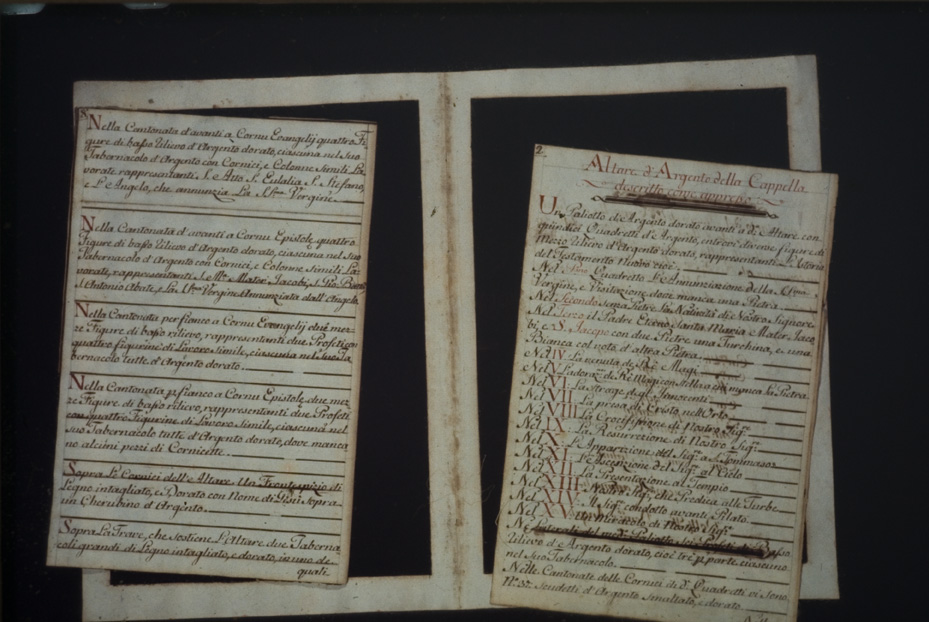 Nella Cantonata d'avanti a Cornu Evangelij quattro Fi
gure di basso rilievo d'Argento dorato, ciascuna nel Suo
Tabernacolo d'Argento con Cornici, e Colonne Simili La
vorate, rappresentanti S. e Atto S. Eulalia S. Stefano,
e L'Angelo, che annunzia La SS.ma Vergine
Nella Cantonata d'avanti a Cornu Epistole quattro
Figure di basso rilievo d'Argento dorato, ciascuna nel Suo
Tabernacolo d'Argento con Cornici, e Colonne Simili La
vorati, rappresentanti S. Mater Jacobi, S.
S. Antonio Abate, e La SS.ma Vergine Annunziata dall'Angelo
Nella Cantonata per fianco a Cornu Evangelij due mez
ze Figure di basso rilievo, rappresentanti due Profeti con
quattro figurine di Lavoro simile, ciascuna nel suo Ta
bernacolo tutte d'Argento dorato
Nella Cantonata p fianco a Cornu Epistole due mez
ze Figure di basso rilievo, rappresentanti due Profeti
con quattro Figurine di Lavoro Simile, ciascuna nel
Suo Tabernacolo tutte d'Argento dorato, dove manca
no alcuni pezzi di Cornicette
Sopra Le Cornici dell'e Altare Un Frontespizio di
Legno intagliato, e Dorato con Nome di Giesù Sopra
un Cherubino d'Argento
Sopra La Trave, che sostiene L'Altare due Taberna
coli grandi di Legno intagliato, e dorato, in uno de
quali
2
Altare d'Argento della Cappella
descritto come appresso
Un Paliotto di Argento dorato avanti a d.o Altare con
quindici Quadretti d'Argento, entrovi diverse figure di
Mezo rilievo d'Argento dorato, rappresentanti L'Istoria
del Testamento Nuovo cioè
Nel Quadretto L'Annunziazione della SS.ma
Vergine, e Visitazione dove manca una Pietra
Nel Secondo senza Pietre La Natività di Nostro Signore
Nel Terzo il Padre Eterno Santa Maria Mater Jaco
bi, e S. Jacopo con due Pietre una Turchina, e una
Bianca col voto d'altra Pietra
Nel IV. La venuta de Re Magi
Nel V. L'adoraz.e di Re Magi con Stella a cui manca la Pietra
Nel VI. La Strage degl'Innocenti
Nel VII. La presa di Cristo nell'Orto
Nel VIII. La Crocifissione di Nostro Sig.re
Nel IX. La Resurrezione di Nostro Sig.re
Nel X. L'Apparizione del Sig.re a S. Tommaso
Nel XI. L'Ascenzione del Sig.re al Cielo
Nel XII. La Presentazione al Tempio
Nel XIII. Nostro Sig.re che Predica alle Turbe
Nel XIV. Il Sig.re condotto avanti Pilato
Nel XV. Un Miracolo di Nostro Sig.re
Ne Laterali del med.o Paliotto Sei Profeti di Basso
rilievo d'e Argento dorato, cioè trè p parte ciascuno
nel suo Tabernacolo
Nelle Cantonate delle Cornici di d.i Quadretti vi sono
N.o 32 Scudetti d'Argento smaltato, e dorato